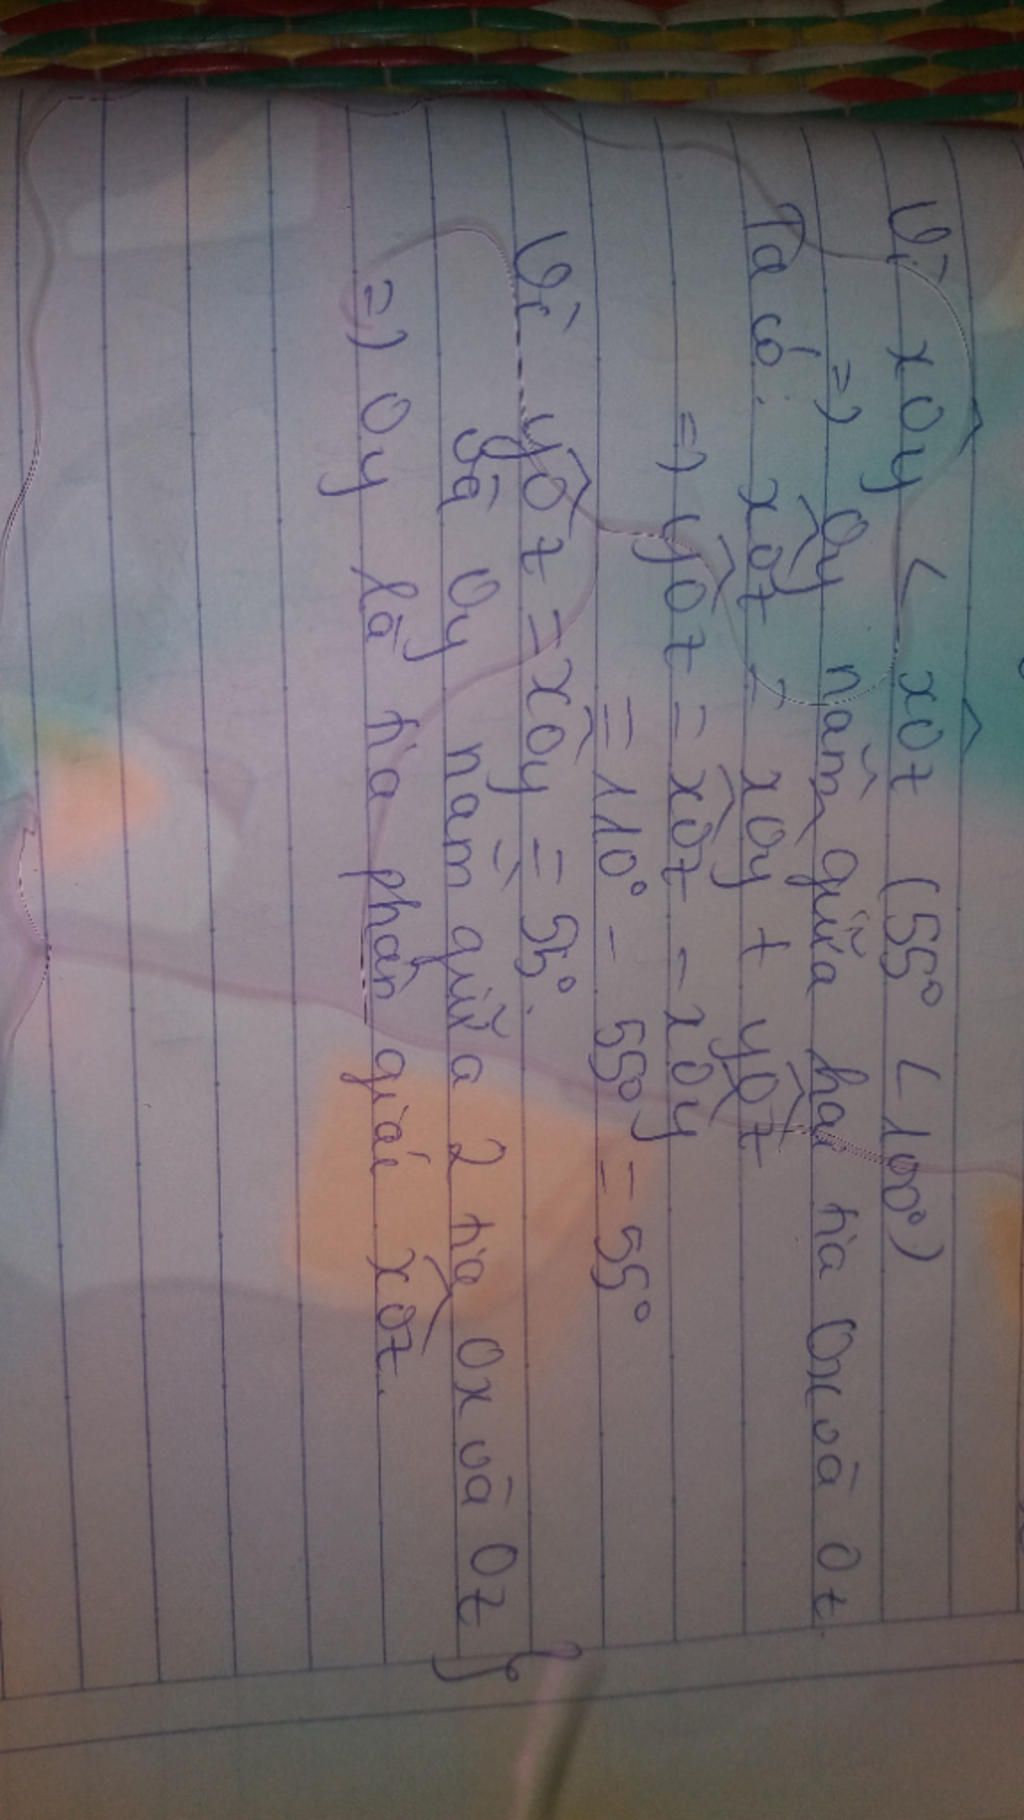 Vì xOy < xOz (55° < 100°)
=) Oy nằm giữa hai tia Ox và Oz.
Ta có: xOz = xOy + yOz
=) yOz = xOz - xOy
= 110° - 55° = 55°
Vì yOz = xOy = 55°.
và Oy nằm giữa 2 tia Ox và Oz }
=) Oy là tia phân giác xOz.